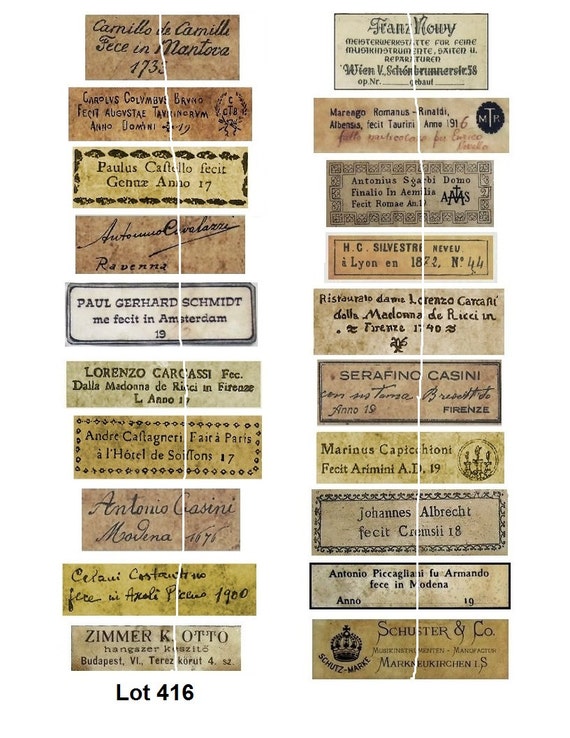 Camillo de Camille
Fece in Mantova
1733
CAROLUS COLUMBUS BRUNO
FECIT AUGUSTAE TAURINORUM
ANNO DOMINI 19
C
CTB
Paulus Castello fecit
Genuæ Anno 17
Antonio Cavalazzi
Ravenna
PAUL GERHARD SCHMIDT
me fecit in Amsterdam
19
LORENZO CARCASSI Fec.
Dalla Madonna de Ricci in Firenze
L Anno 17
Andre Castagneri, Fair à Paris
à l'Hôtel de Soissons 17
Antonio Casini
Modena 1676
Celani Costantino
fece in Ascoli Piceno 1900
ZIMMER K. OTTO
hangszer készitő
Budapest, VI., Terez körut 4. sz.
Lot 416
Franz Nowy
MEISTERWERKSTÄTTE FÜR FEINE
MUSIKINSTRUMENTE, SAITEN U.
REPARATUREN
Wien V., Schönbrunnerstr. 58
op. Nr. gebaut
Marengo Romanus - Rinaldi,
Albensis, fecit Taurini Anno 1916
MTR
Antonius Sgarbi Domo
Finalio In Aemilia
Fecit Romae An. 1
H. C. SILVESTRE NEVEU
à Lyon en 1872, N° 44
Ristaurato da me Lorenzo Carcassi
dalla Madonna de Ricci in
Firenze 1740
SERAFINO CASINI
con sistema
Anno 19 FIRENZE
Marinus Capicchioni
Fecit Arimini A.D. 19
Johannes Albrecht
fecit Cremsii 18
Antonio Piccagliani fu Armando
fece in Modena
Anno 19
SCHUSTER & CO.
MUSIKINSTRUMENTEN - MANUFACTUR
MARKNEUKIRCHEN I. S
SCHUTZ-MARKE